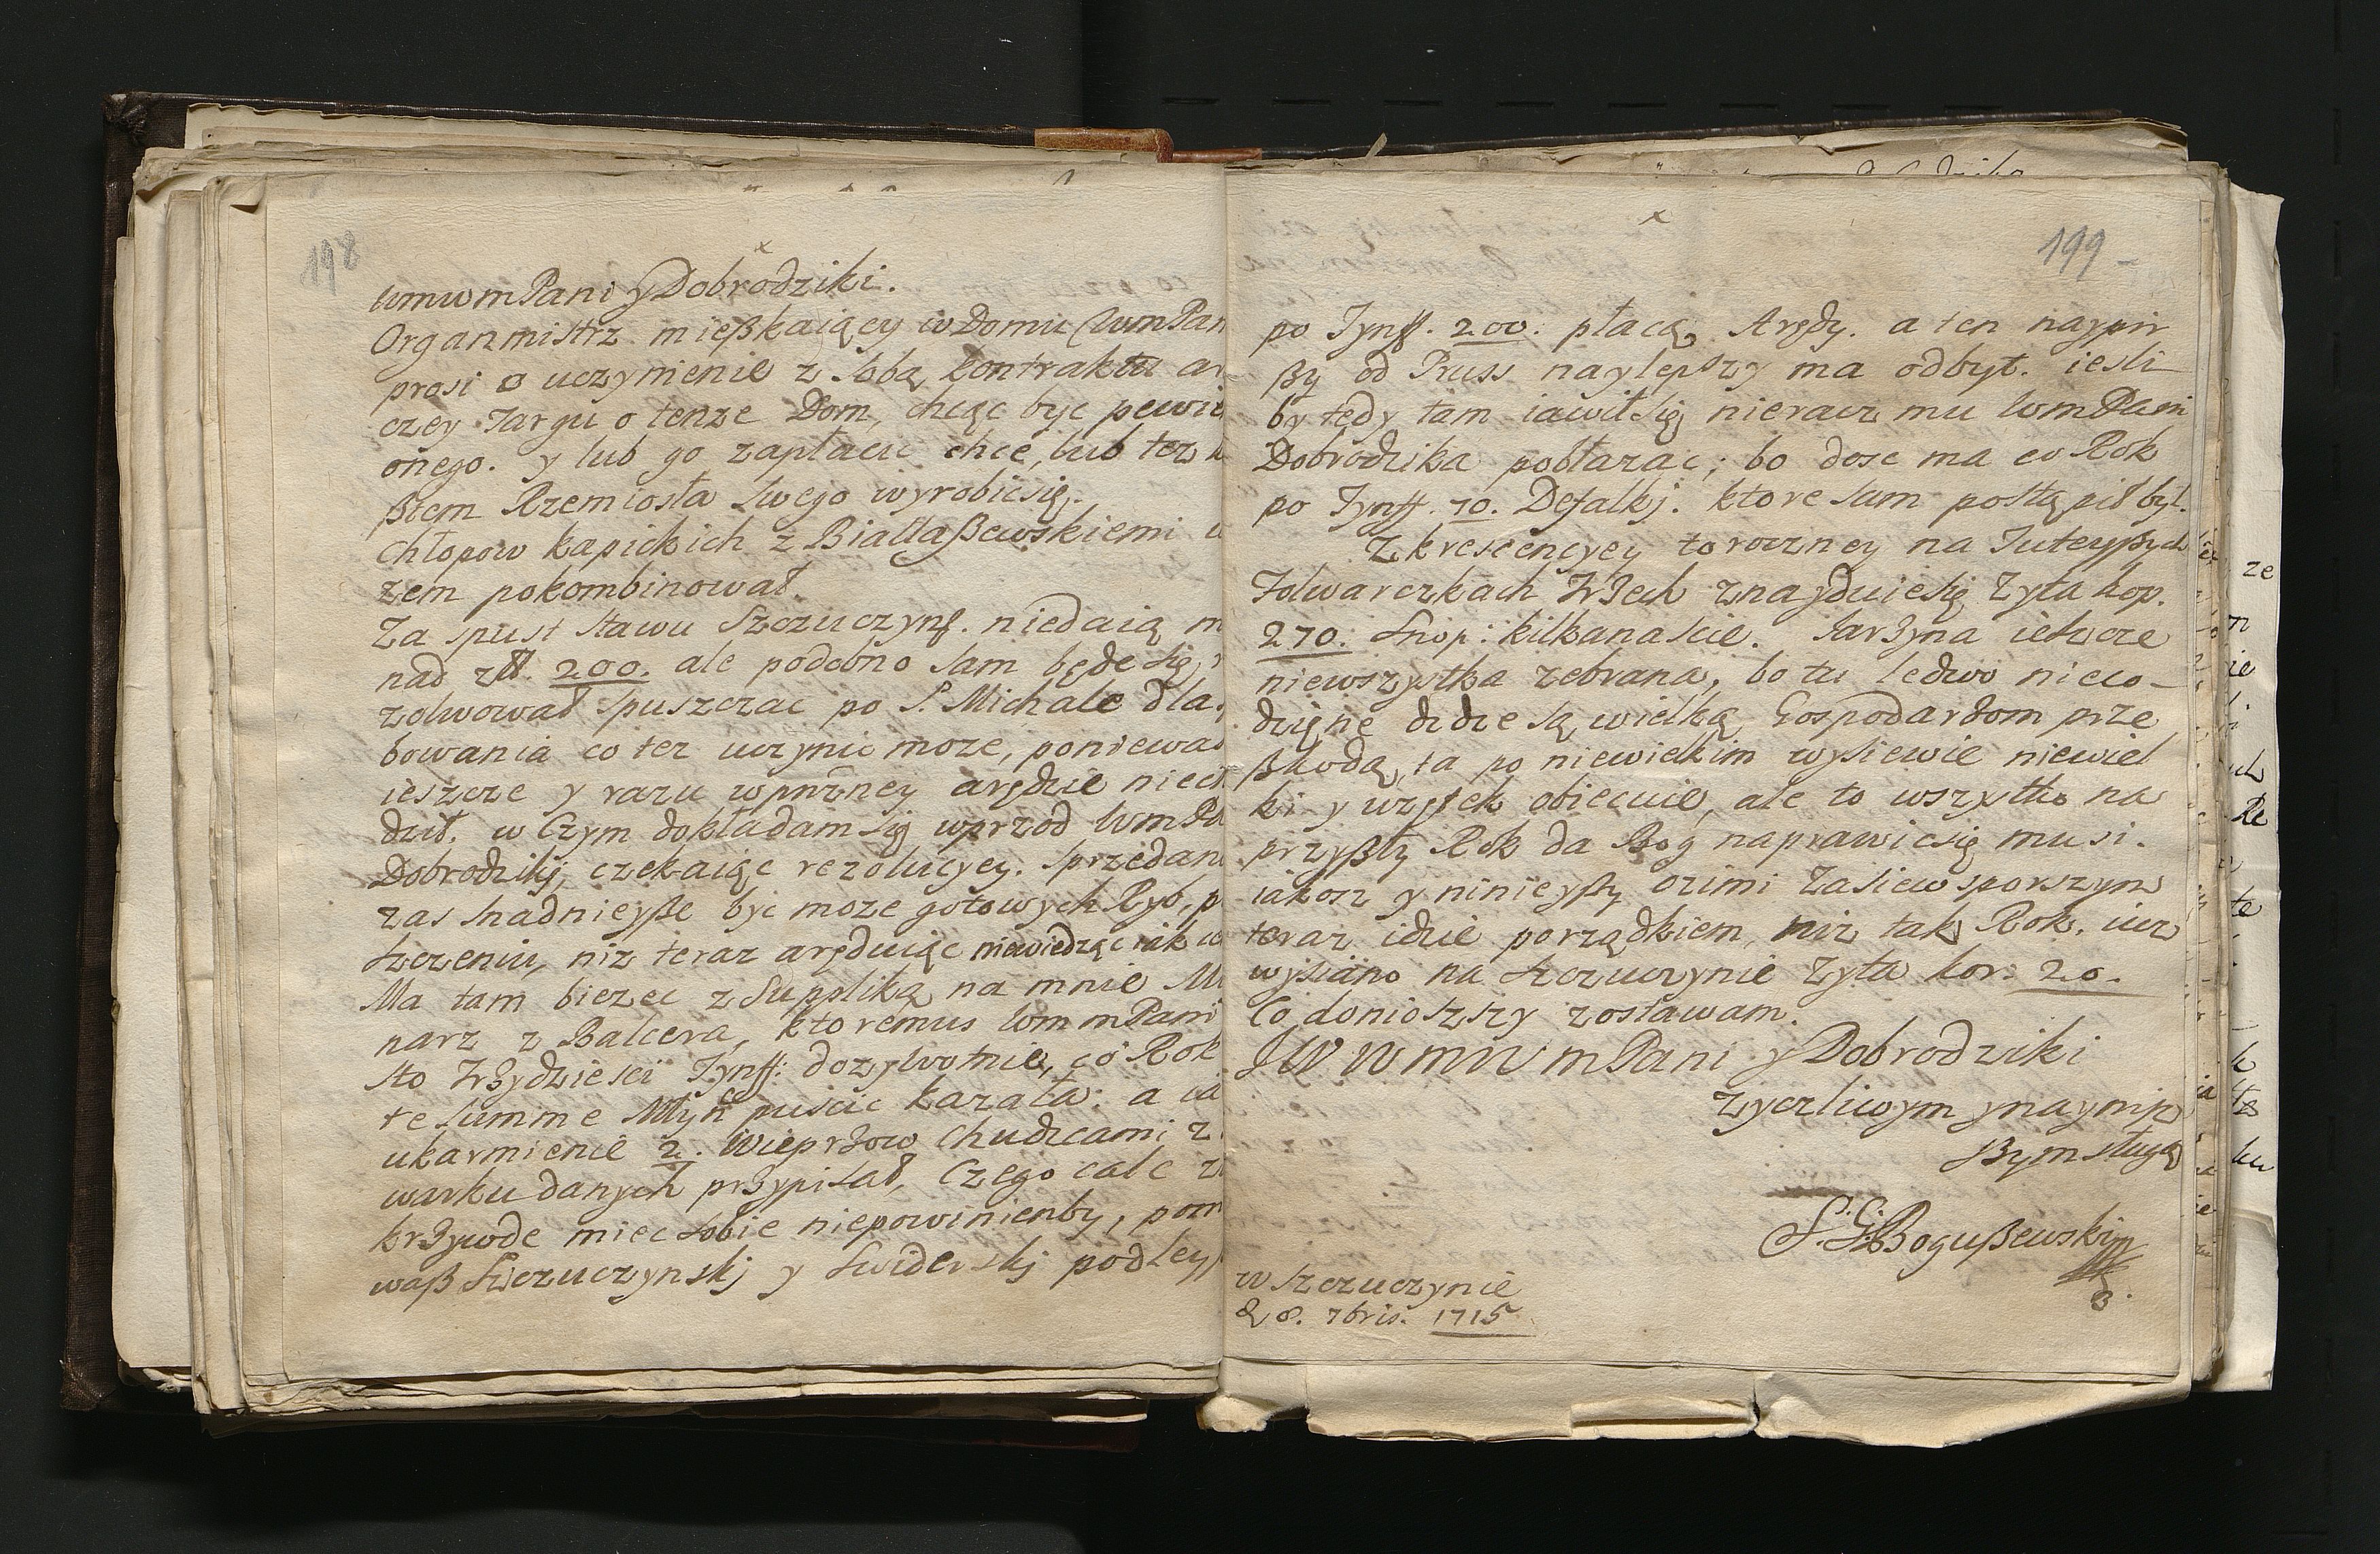 198
WmwmPani y Dobrodziki.
Organmistrz mießkaiący w Domu WmPan
prosi o uczynienie z sobą kontraktu ar
czey Targu o tenze Dom, chcąc byc pewie
onego. y lub go zapłacic chce, lub tez
ßtem Rzemiosła swego wyrobicsię.
Chłopow kapickich z Białłaßewskiemi
zem pokombinował.
Za spust stawu Szczuczynß. niedaią m
nad zł. 200. ale podobno sam będe się
zolwował spuszczac po S. Michale dla
bowania co tez uczynic moze, poniewaz
ieszcze y razu wpurzney arędzie niecho
dził. w Czym dokładamsię wprzod WmPa
Dobrodzikj, czekaiąc rezolucyey. Sprzedan
zas snadnieyße byc moze gotowych Ryb, p
szczeniu, niz teraz aręduiąc niewiedząc iak
Ma tam biezec z Suppliką na mnie
narz z Balcera, ktoremus WmmPani
sto trzydziesci Tynff: dozywotnie, co Rok
te summe Młyn puscic kazała: a ia
ukarmienie 2. Wieprzow Chudzcami z
warku danych przypisał, Czego cale z
krzywde miec sobie niepowinienby, pon
waß Szczuczynskj y Swiderskj podley
x
199
po Tynff. 200. płacą Arędy. a ten naypir
ßy od Pruss naylepszy ma odbyt. iesli
by tedy tam iawiłsię nieraczmu WmPani
Dobrodzika pobłazac; bo dosc ma co Rok
po Tynff. 70. Defalkj. ktore sam postąpił był.
Z krescencyey toroczney na Tuteyßych
Folwarczkach trzech znayduiesię Zyta kop.
270. Snop: kilkanascie. Jarzyna ieszcze
niewszystka zebrana, bo tu ledwo nieco-
dzięne dzdze są wielką Gospodarzom prze
ßkodą, ta po niewielkim wysiewie niewiel
ki y wzątek obiecuie, ale to wszystko na
przyßły Rok da Bog naprawicsię musi.
iakosz y ninieyßy ozimi Zasiew sporszym
teraz idzie porządkiem, niz tak Rok. iuz
wysiano na Szczuczynie Zyta kor. 20.
Co doniozszy zostawam.
JWWmmMPani y Dobrodziki
Zyczliwym y nayniz
ßym sługą
S. G. Bogußewskj
w Szczuczynie
d 8. 7bris. 1715